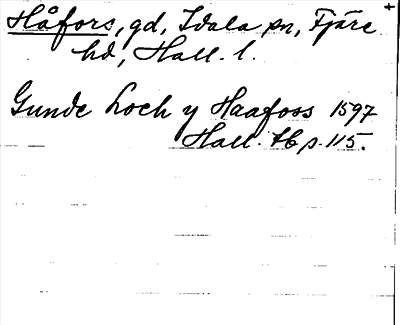 Håfors, gd, Idala sn, Fjäre
hd, Hall. l.
Gunde Loch y Haafoss 1597
Hall. Hb p. 115.